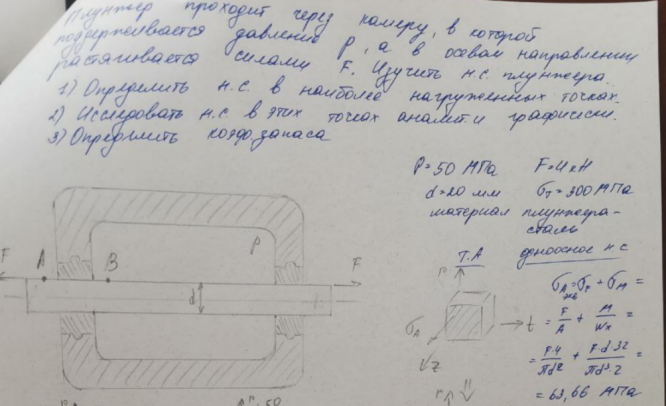 Плунжер проходит через камеру, в которой
поддерживается давление p, а в осевом направлении
растягивается силами F. Изучить н.с. плунжера.
1) Определить н.с. в наиболее нагруженных точках.
2) Исследовать н.с. в этих точках аналит. и графически.
3) Определить коэф запаса
P=50 МПа F=4кН
d=20 мм σт=300 МПа
материал плунжера-
сталь
Т.А
одноосное н.с
F A B p d F
r
σA t
z
σA экв=σF+σM=
=F/A+M/Wx=
=F·4/πd²+F·d·32/πd³·2=
=63,66 МПа
r
50